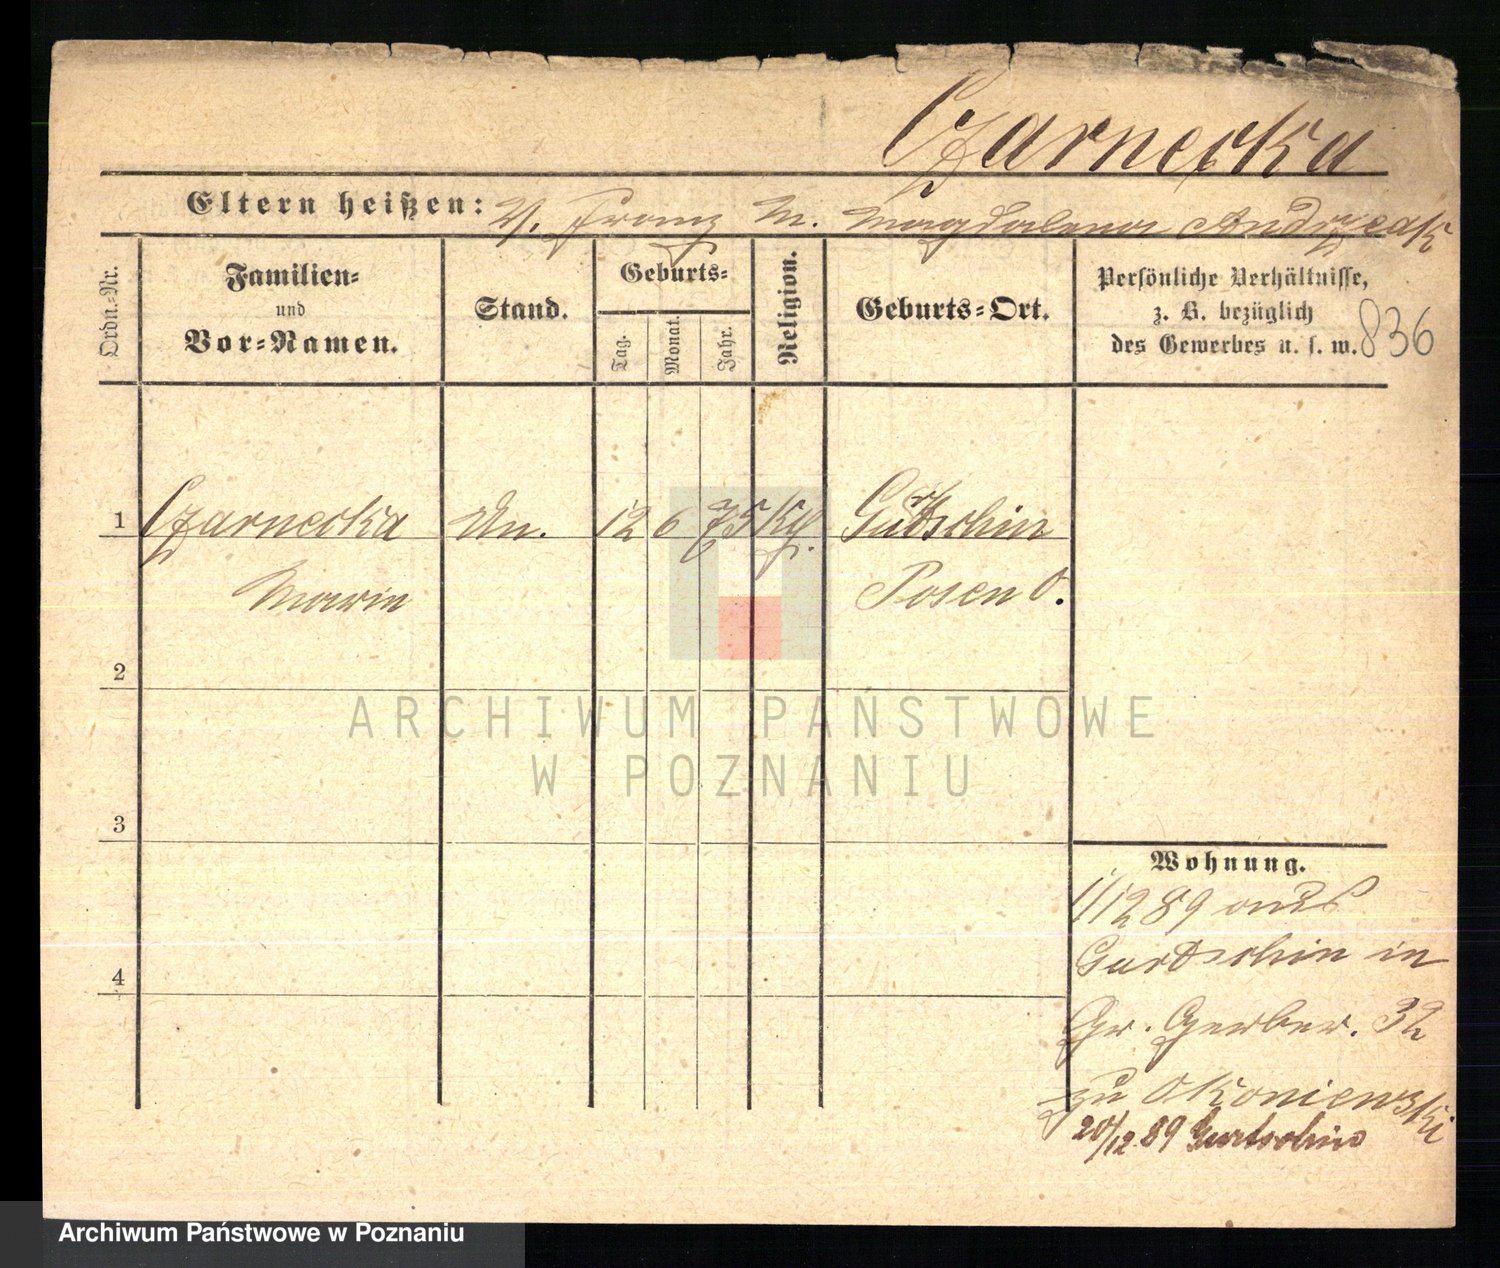 Czarnecka
Eltern heißen: V. Franz M. Magdalena Andrzeak
Ordn.-Nr.
Familien-
und
Vor-Namen.
Stand.
Geburts-
Tag.
Monat.
Jahr.
Religion.
Geburts-Ort.
Persönliche Verhältnisse,
z. B. bezüglich
des Gewerbes u. s. w. 836
1 Czarnecka Un. 12 6 75 Kth. Gurtschin
Marie Posen O.
2
3
4
Wohnung.
1/12 89 aus
Gurtschin in
Gr. Gerber. 32
zu Okoniewski
20/12 89 Gurtschin
ARCHIWUM PAŃSTWOWE
W POZNANIU
Archiwum Państwowe w Poznaniu